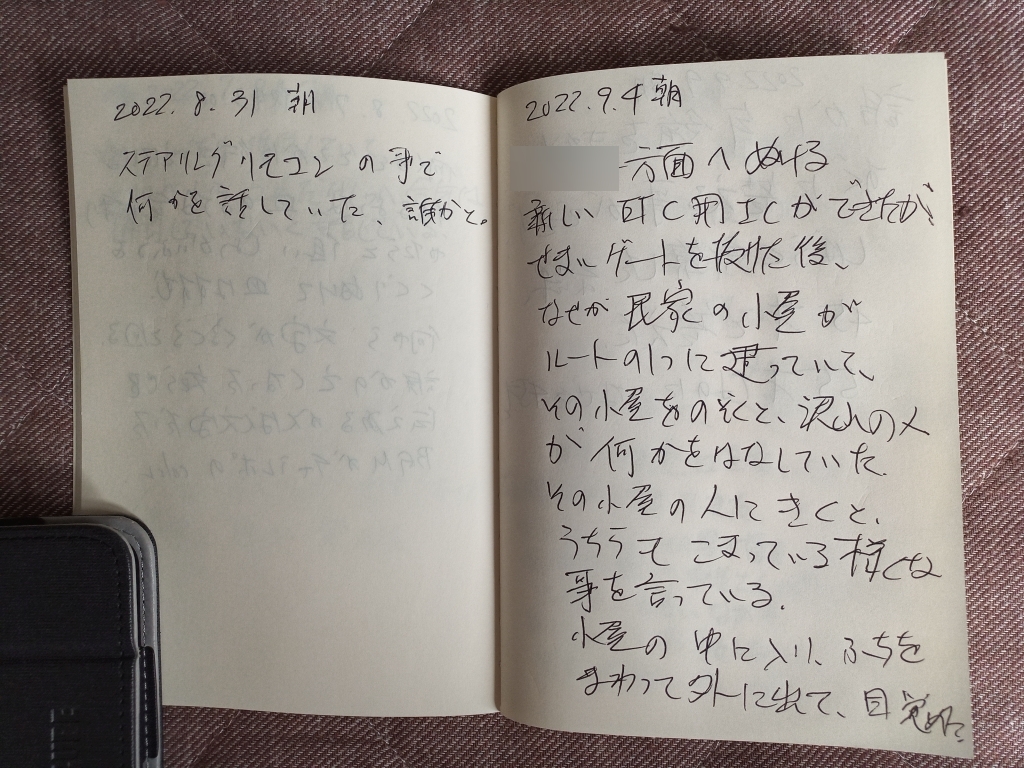 2022.8.31 朝
ステアリングリモコンの事で
何かを話していた、誰かと。
2022.9.4 朝
方面へぬける
新しい ETC専用ICができたが
せまいゲートを抜けた後、
なぜか民家の小屋が
ルートの1つに建っていて、
その小屋をのぞくと、沢山の人
が何かをはなしていた。
その小屋の人にきくと、
うちらもこまっている様な
事を言っている。
小屋の中に入り、ふちを
まわって外に出て、目覚めた。